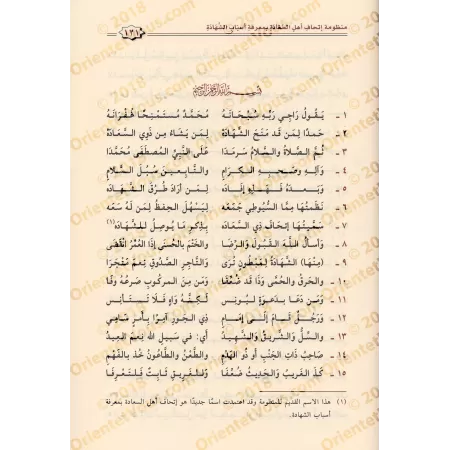 منظومة إتحاف أهل السعادة بمعرفة أسباب الشهادة
١٢١
بسم الله الرحمن الرحيم
١ ـ يَقُولُ رَاجِي رَبِّهِ سُبْحَانَهُ مُحَمَّدٌ مُسْتَمْنِحًا غُفْرَانَهُ
٢ ـ حَمْدًا لِمَن قَد مَنَحَ الشَّهَادَهْ لِمَن يَشَاءُ مِن ذَوِي السَّعَادَهْ
٣ ـ ثُمَّ الصَّلاةُ والسَّلامُ سَرمَدَا عَلَى النَّبِيِّ المُصطَفَى مُحَمَّدَا
٤ ـ وَآلِهِ وصَحبِهِ الكِرَامِ والتَّابِعينَ سُبُلَ السَّلامِ
٥ ـ وَبَعدَهُ فَهذِهِ إِفَادَه لِمَن أَرَادَ طُرُقَ الشَّهَادَه
٦ ـ نَظَمتُهَا بِمَا السُّيُوطِي جَمَعَه لِيَسْهُلَ الحِفظُ لِمَن لَهُ سَعَه
٧ ـ سَمَّيتُهَا إِتحَافَ ذِي السَّعَادَه بِذِكرِ مَا يُوصِلُ لِلشَّهَادَه(١)
٨ ـ وَأَسأَلُ اللهَ القَبُولَ وَالرِّضَا وَالخَتْمَ بِالحُسنَى إِذَا العُمرُ انْقَضَى
٩ ـ (مِنْهَا) الشَّهَادَةُ لِمَبْطُونٍ تُرَى وَالتَّاجِرِ الصَّدُوقِ نِعمَ مَتْجَرَا
١٠ ـ وَالحَرقُ وَالحُمَّى وَذَا قَد ضُعِّفَا وَمَن مِنَ المركُوبِ صَرعُهُ وَفَا
١١ ـ وَمَن دَعَا بِدَعوَةٍ لِيُونُسِ لَكِنَّهُ وَاهٍ فَلَا تَستَأنِسِ
١٢ ـ وَرَجُلٌ قَامَ إِلَى إِمَامِ ذِي الجَورِ آمِرًا بِأَمرٍ سَامِي
١٣ ـ والسُّلُّ وَالشَّرِيقُ وَالشَّهِيدُ أي: في سبيل الله نِعمَ العِيدُ
١٤ ـ صَاحِبُ ذَاتِ الجَنْبِ أَو ذُو الهَدْمِ وَالطَّعْنُ وَالطَّاعُونُ خُذ بِالفَهْمِ
١٥ ـ كَذَا الغَرِيبُ وَالحَدِيثُ ضُعِّفَا وَالغَرِيقُ ثَابِتٌ
(١) هذا الاسم القديم للمنظومة وقد اعتمدت اسمًا جديدًا هو إتحاف أهل السعادة بمعرفة
أسباب الشهادة.
Orientetvous.fr © 2018